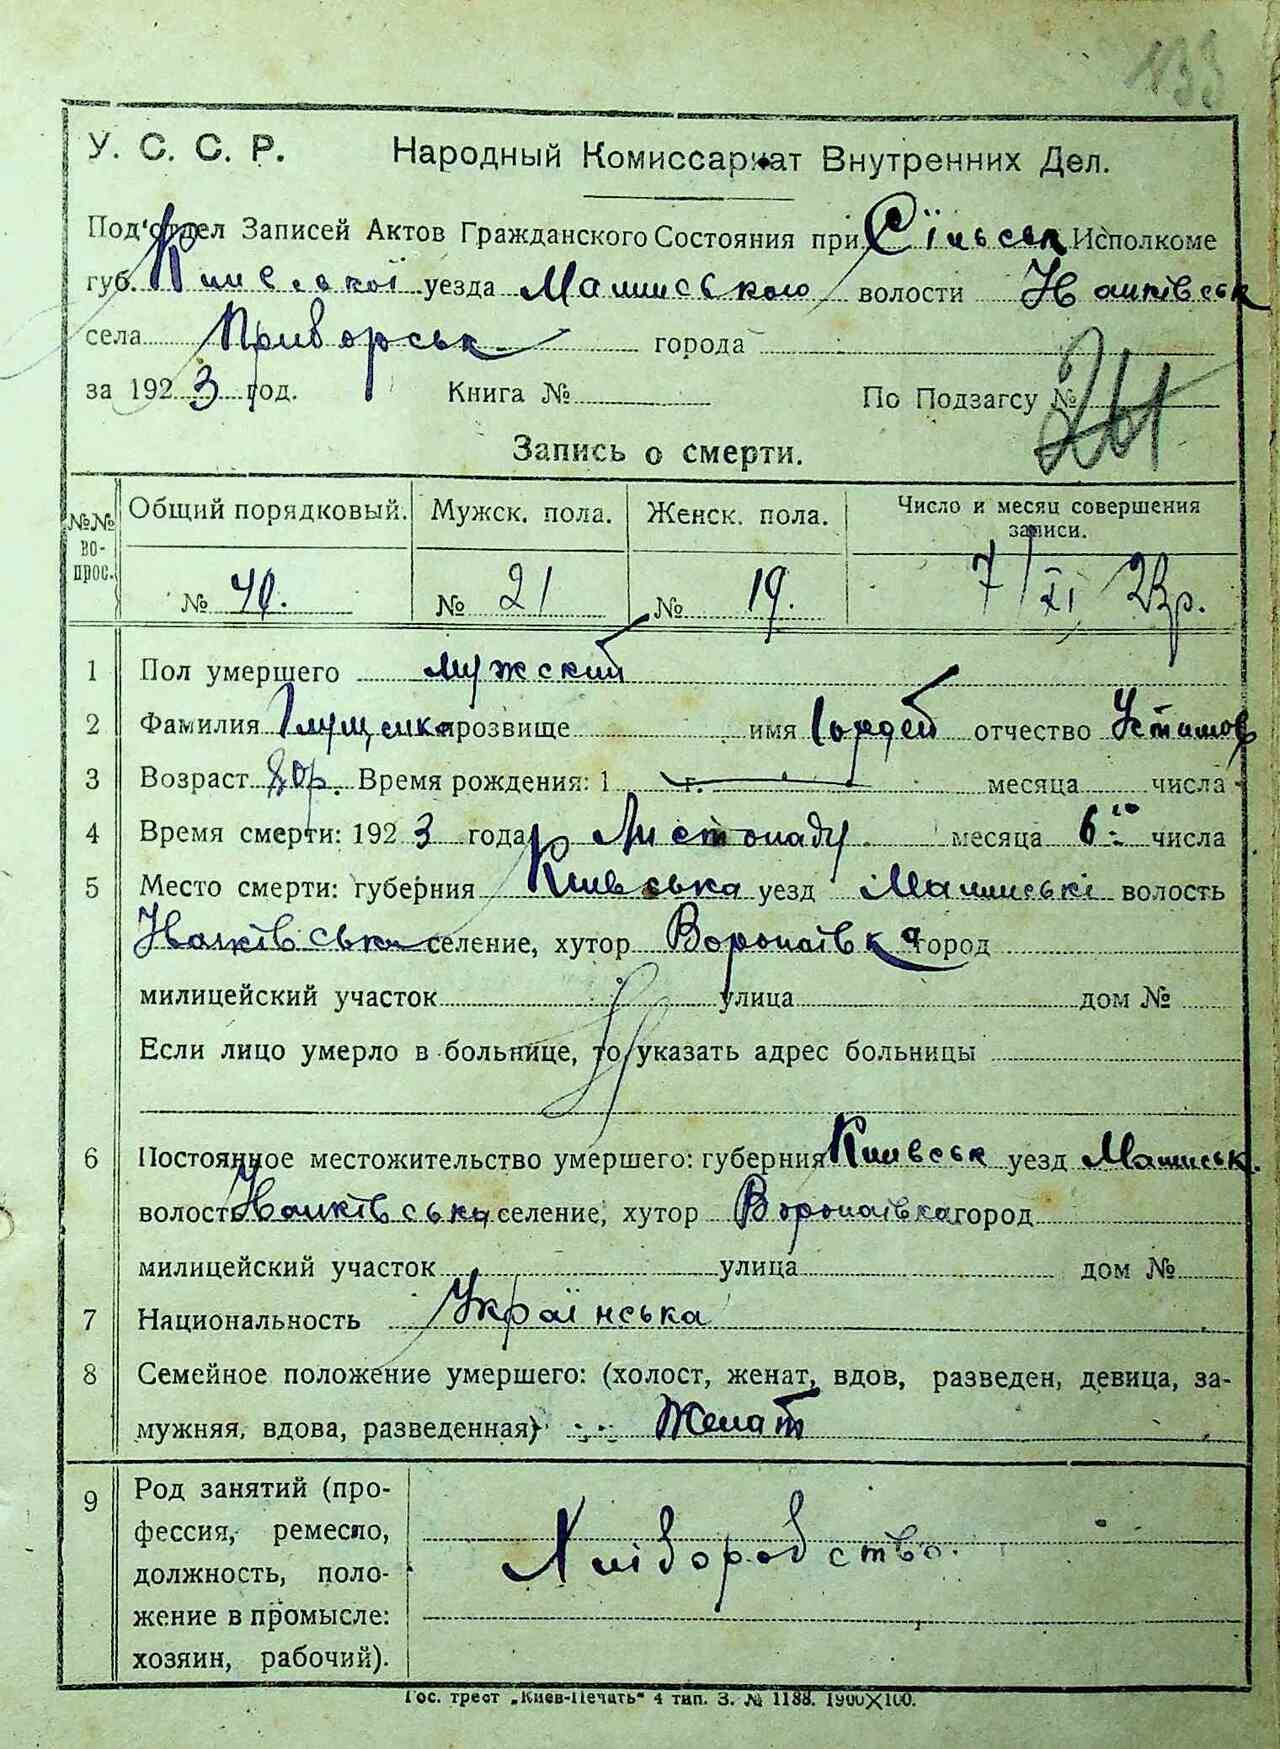 133
У. С. С. Р. Народный Комиссариат Внутренних Дел.
Под'отдел Записей Актов Гражданского Состояния при Сільськ Исполкоме
губ. Київської уезда Малинського волости
села Приворськ города
за 1923 год. Книга № По Подзагсу №
Запись о смерти.
№№ вопрос. Общий порядковый. Мужск. пола. Женск. пола. Число и месяц совершения записи.
№ 40. № 21 № 19. 7/XI 23р.
1 Пол умершего мужский
2 Фамилия Глущенко прозвище имя Гордей отчество Устимов
3 Возраст 80р. Время рождения: 1 г. месяца числа
4 Время смерти: 1923 года Листопаду месяца 6го числа
5 Место смерти: губерния Київська уезд Малинські волость
селение, хутор Воропаївка город
милицейский участок улица дом №
Если лицо умерло в больнице, то указать адрес больницы
6 Постоянное местожительство умершего: губерния Київськ уезд Малинськ.
волость селение, хутор Воропаївка город
милицейский участок улица дом №
7 Национальность Українська
8 Семейное положение умершего: (холост, женат, вдов, разведен, девица, за-
мужняя, вдова, разведенная) Женат
9 Род занятий (про-
фессия, ремесло,
должность, поло-
жение в промысле:
хозяин, рабочий).
Хліборобство.
Гос. трест „Киев-Печать" 4 тип. З. № 1188. 1900×100.